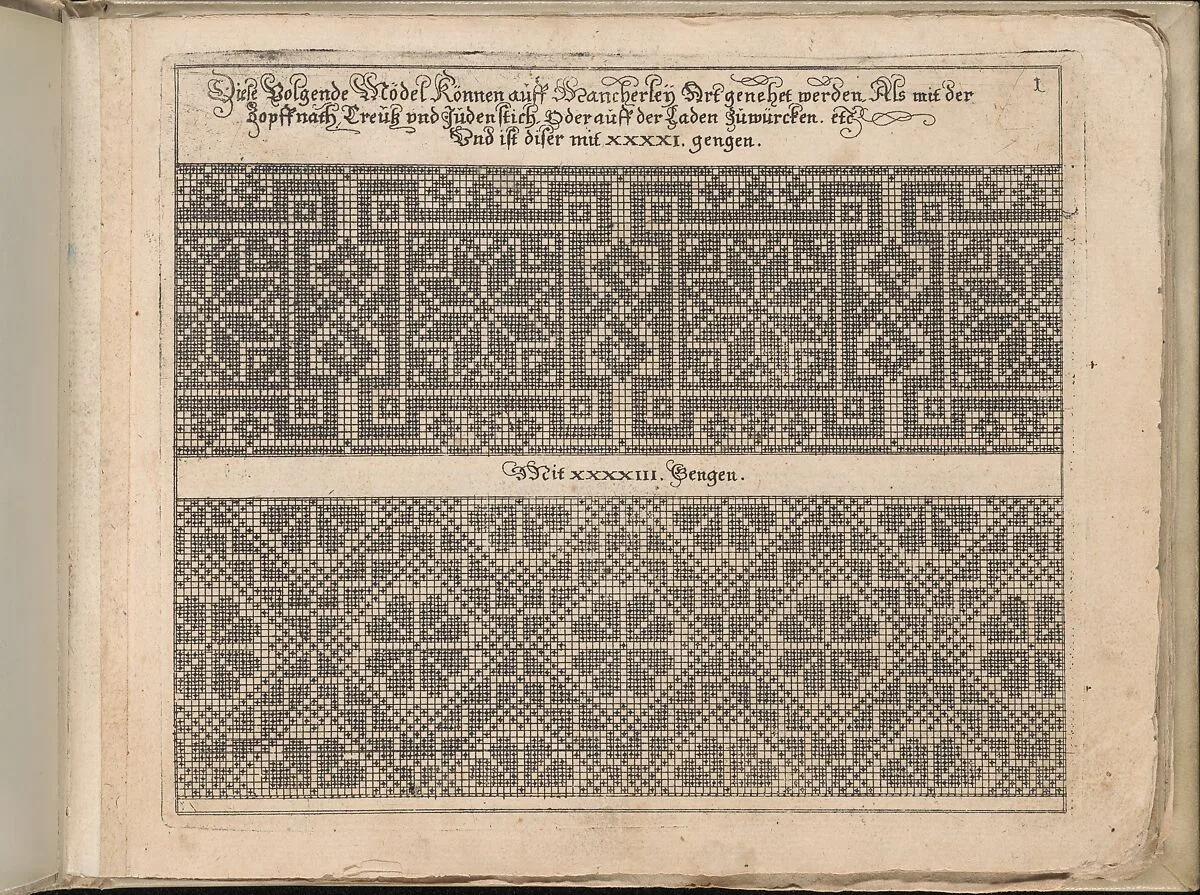 Diese Volgende Mödel Können auff Mancherley Art genehet werden. Als mit der
1
Zopffnath, Creütz vnd Juden stich. Oder auff der Laden Zuwürcken. etc.
Vnd ist diser mit XXXXI. gengen.
Mit XXXXIII. Gengen.